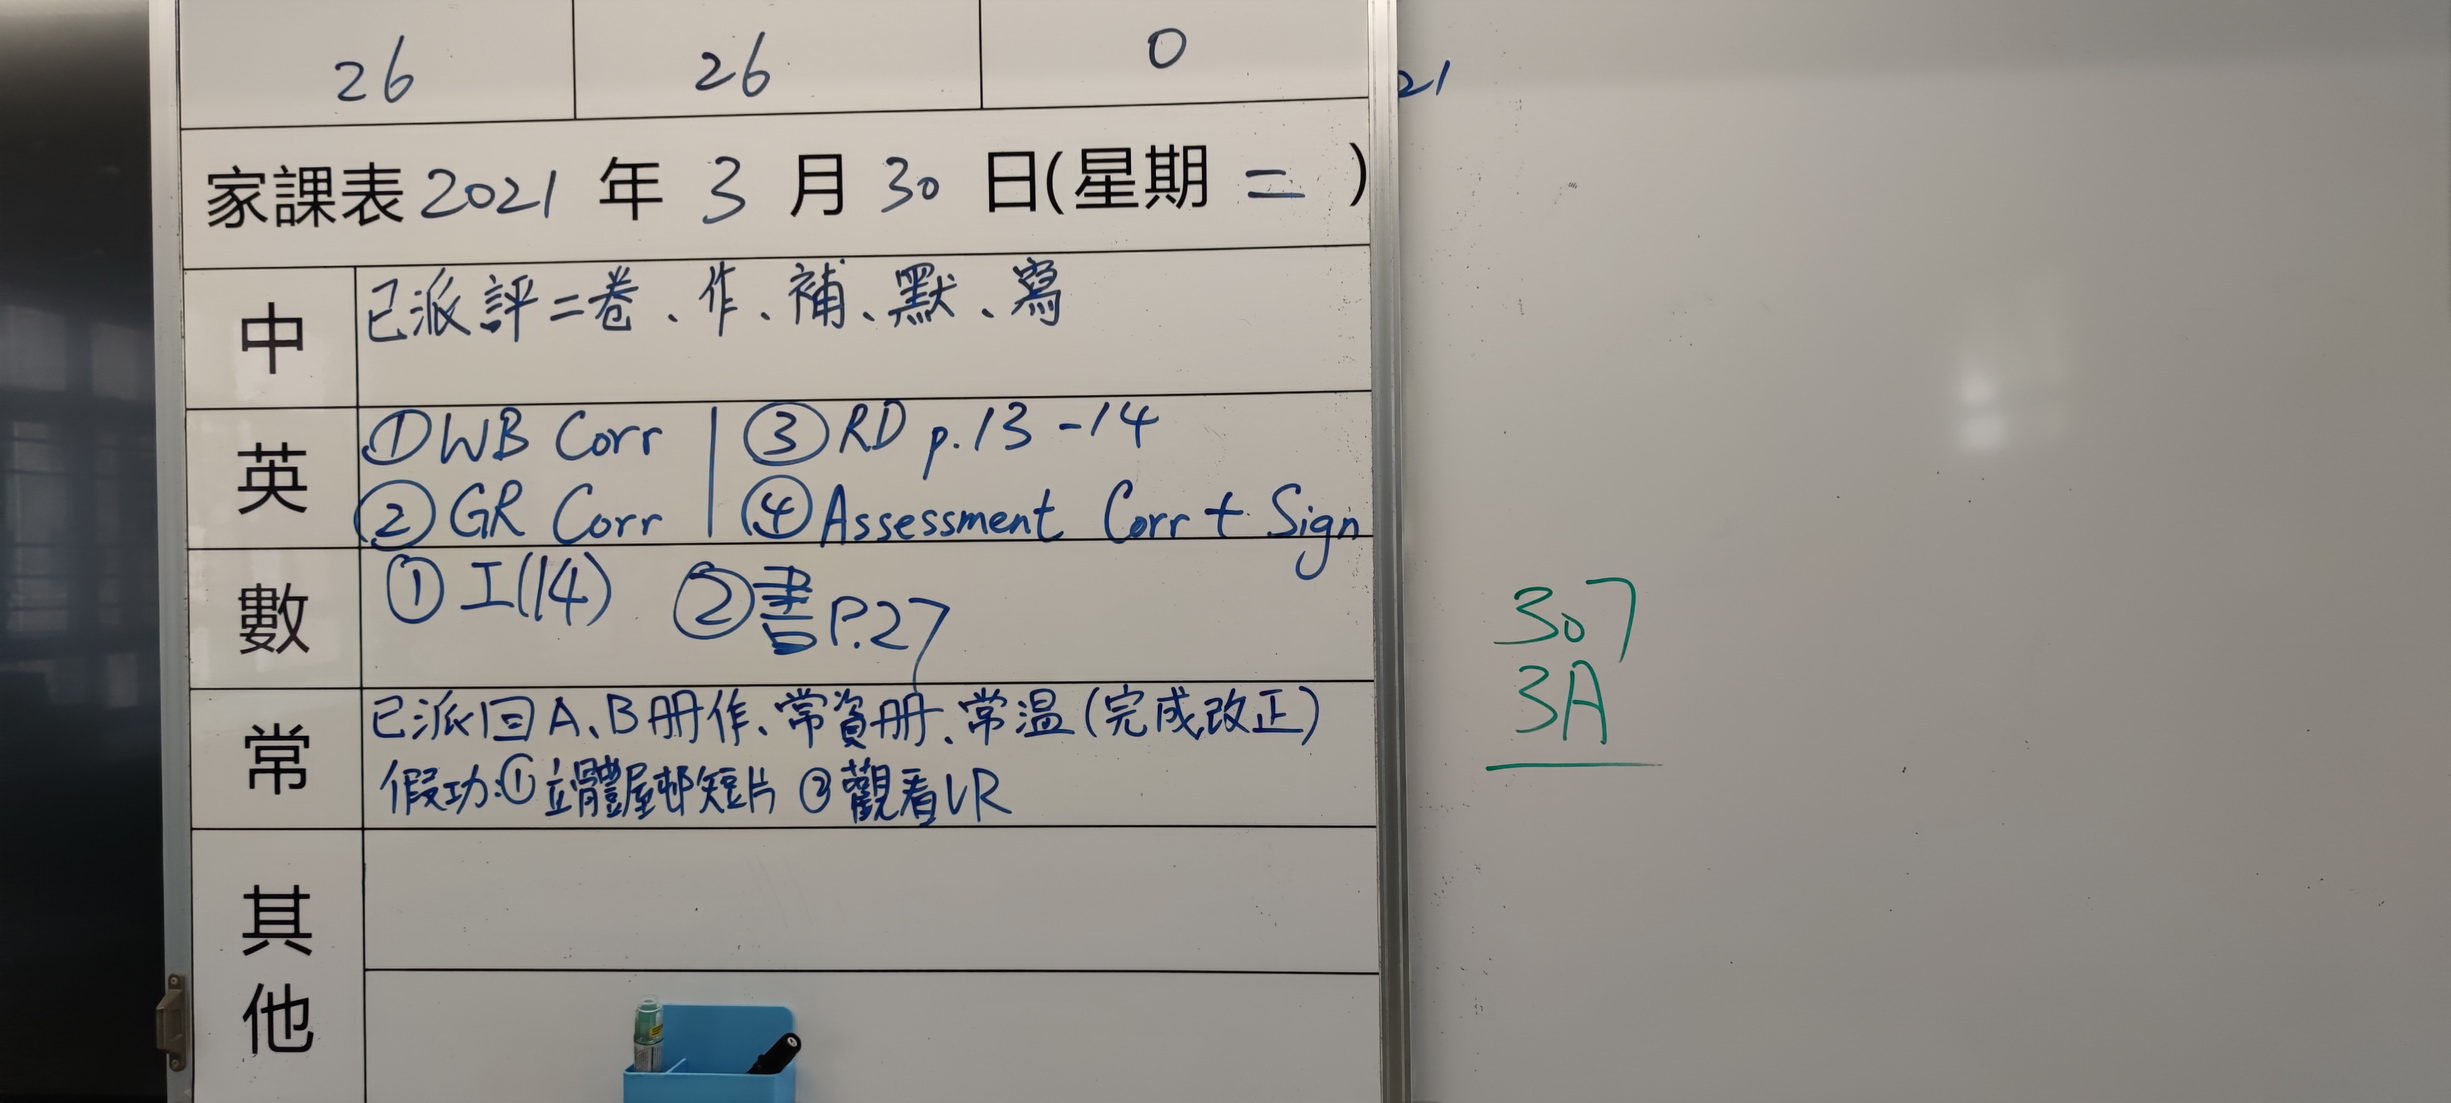 26 26 0
21
家課表 2021 年 3 月 30 日(星期 二 )
中 已派評二卷、作、補、默、寫
英 ①WB Corr | ③RD p.13-14
②GR Corr | ④Assessment Corr + Sign
數 ①工(14) ②書P.27
常 已派回A、B冊作、常資冊、常溫(完成改正)
假功:①立體屋邨短片 ②觀看VR
其他
307
3A